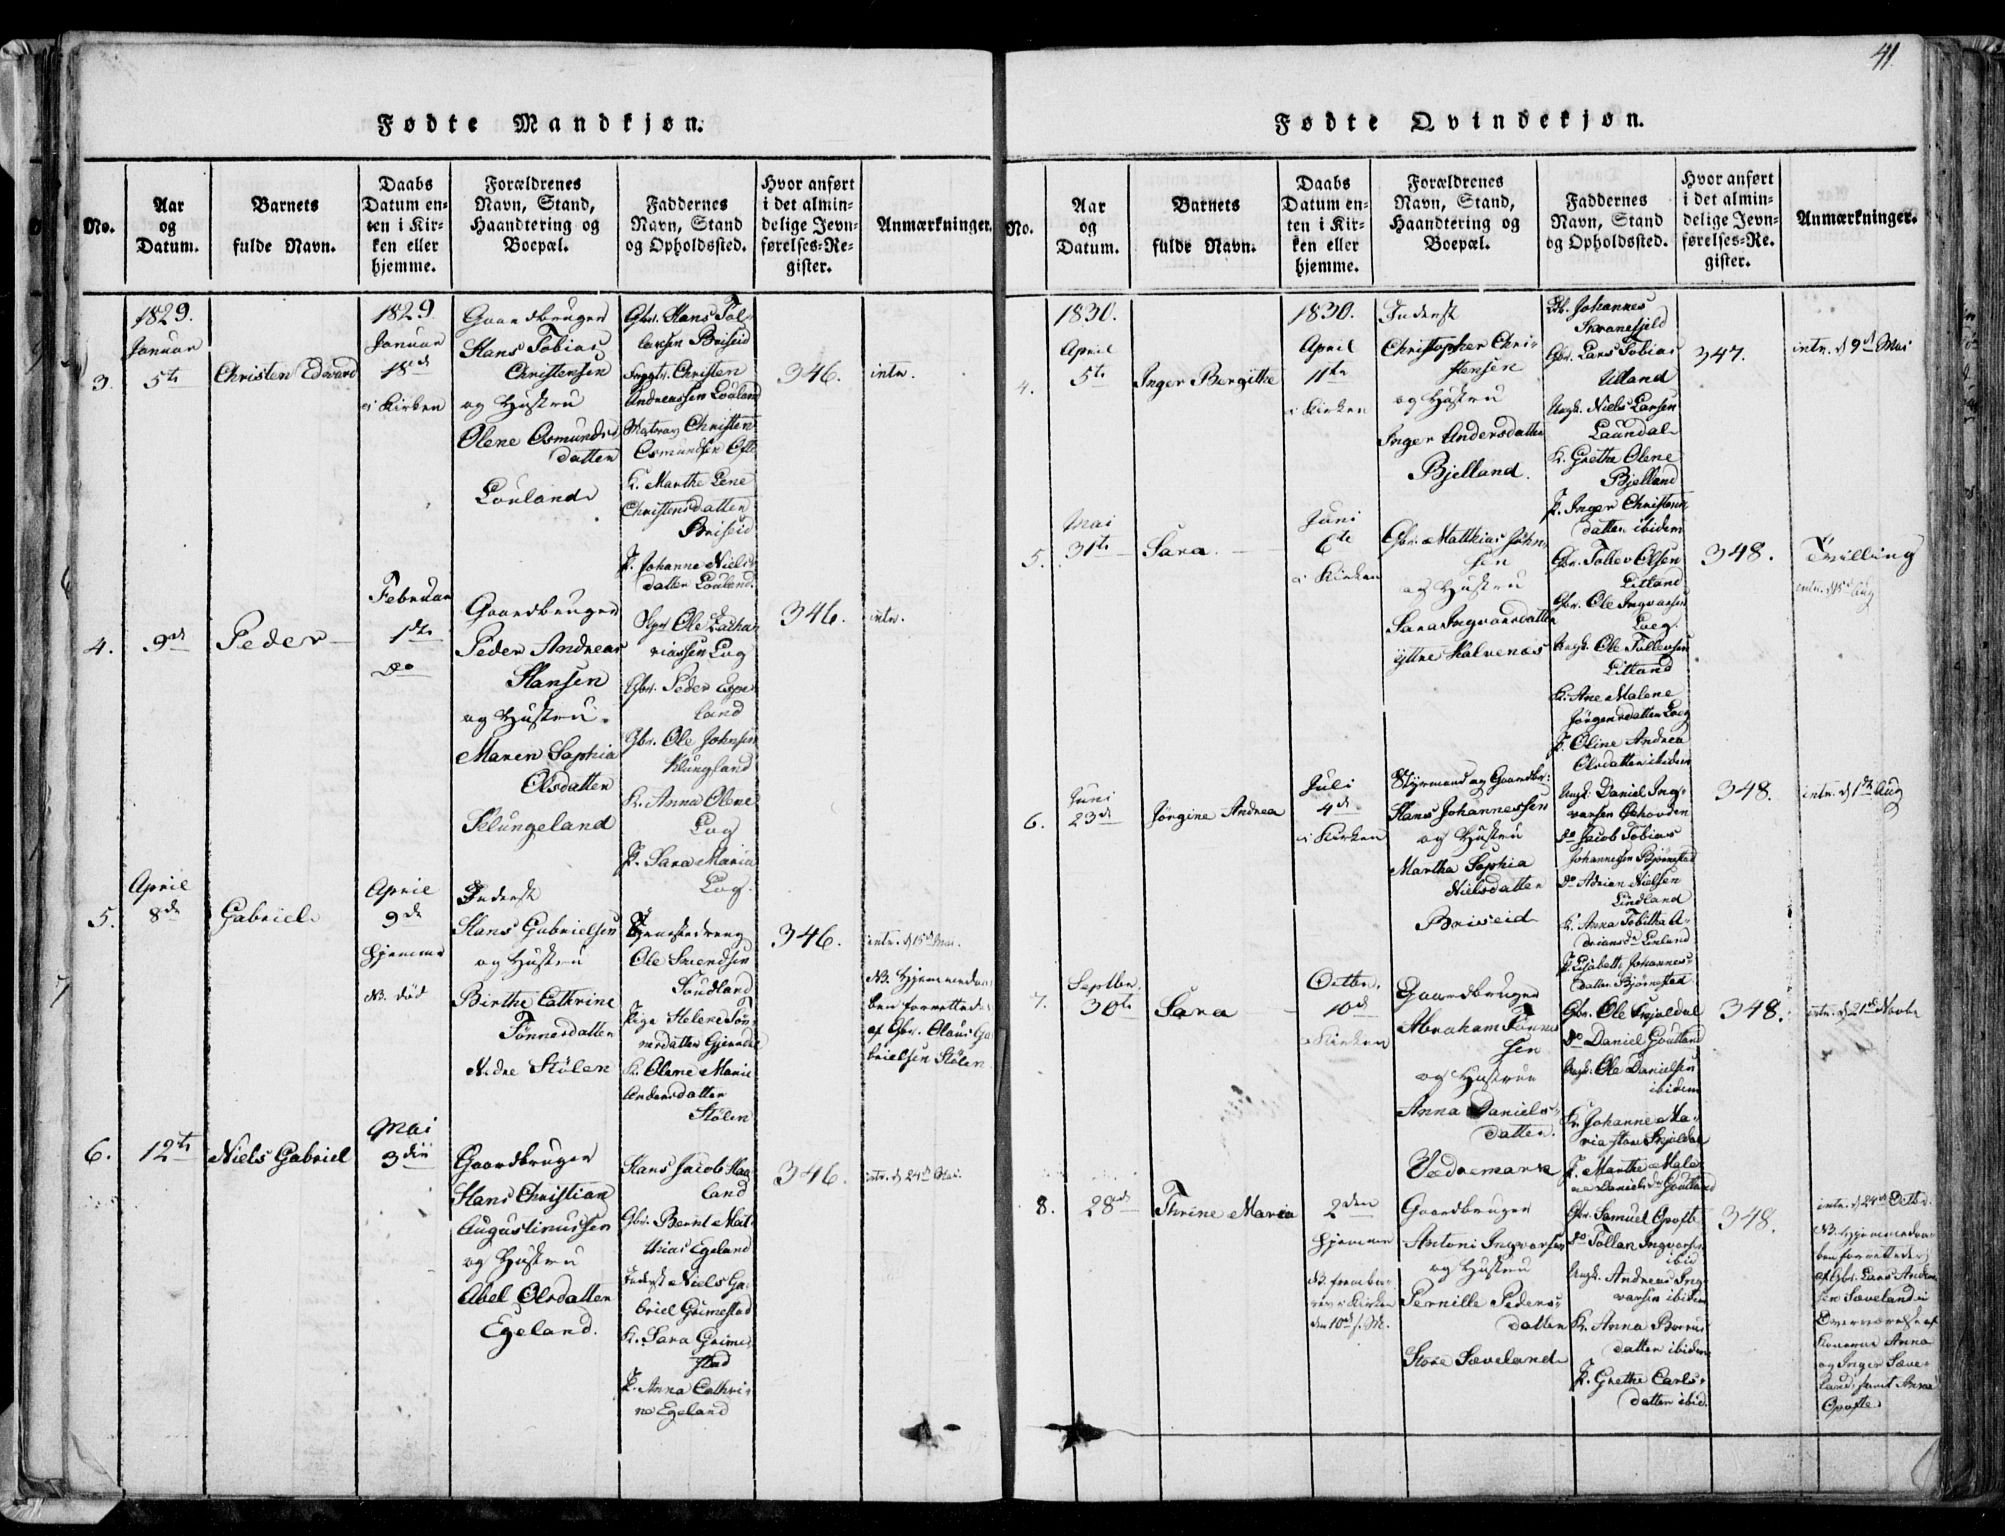 41.
Fødte Mandkjøn.
No.
Aar
og
Datum.
Barnets
fulde Navn.
Daabs
Datum en-
ten i Kir-
ken eller
hjemme.
Forældrenes
Navn, Stand,
Haandtering og
Boepæl.
Faddernes
Navn, Stand
og Opholdssted.
Hvor anført
i det almin-
delige Jevn-
førelses-Re-
gister.
Anmærkninger.
3.
1829.
Januar
5te
Christen Edvard
1829
Januar
18de
i Kirken
Gaardbruger
Hans Tobias
Christensen
og Hustru
Olene Osmunds
datter
Louland
Gbr. Hans Tol-
lavsen Briseid
Christen
Andreassen Louland
Christen
Osmundsen Ofte
K. Marthe Lene
Christensdatter
Briseid
P. Johanne Niels-
datter Louland.
346.
intr.
4.
9de
Peder
Februar
1ste
do
Gaardbruger
Peder Andreas
Hansen
og Hustru
Maren Sophia
Olsdatter
Klungeland
Ole Zacha-
riassen Log
Gbr. Peder Espe-
land
Gbr. Ole Johnsen
Klungland
K. Anna Olene
Log
P. Sara Maria
Log.
346.
intr.
5.
April
8de
Gabriel
April
9de
hjemme
NB. død
Inderst
Hans Gabrielsen
og Hustru
Birthe Cathrine
Tønnesdatter
Nedre Stölen
Tjenestedreng
Ole Svendsen
Soudland
Pige Helene Tön-
nesdatter Gjerndal
K. Olene Marie
Andersdatter
Stölen
346.
intr. d. 15de Mai.
NB. Hjemmedaa-
ben forrettedes
af Gbr. Olaus Ga-
brielsen Stölen
6.
12te
Niels Gabriel
Mai
3die
Gaardbruger
Hans Christian
Augustinussen
og Hustru
Abel Olsdatter
Egeland.
Hans Jacob Haa-
land
Gbr. Bernt Mat-
thias Egeland
Inderst Niels Ga-
briel Grimestad
K. Sara Grime-
stad
P. Anna Cathri-
ne Egeland
346.
intr. d. 24de Mai.
Fødte Qvindekjøn.
No.
Aar
og
Datum.
Barnets
fulde Navn.
Daabs
Datum en-
ten i Kir-
ken eller
hjemme.
Forældrenes
Navn, Stand,
Haandtering og
Boepæl.
Faddernes
Navn, Stand
og Opholdssted.
Hvor anført
i det almin-
delige Jevn-
førelses-Re-
gister.
Anmærkninger.
4.
1830.
April
5te
Inger Bergitte
1830.
April
11te
i Kirken
Inderst
Christopher Chri-
stensen
og Hustru
Inger Andersdatter
Bjelland.
Johannes
Skranefjeld
Gbr. Lars Tobias
Ulland
Ungk. Niels Larsen
Laundal
K. Grethe Olene
Bjelland
P. Inger Christens
datter ibidem
347.
intr. d. 9de Mai
5.
Mai
31te
Sara
Juni
6te
i Kirken
Gbr. Matthias John-
sen
og Hustru
Sara Ingvarsdatter
yttre Halvenæs
Gbr. Tollev Olsen
Litland
Gbr. Ole Ingvarsen
Loeg.
Ungk. Ole Tollevsen
Litland
K. Ane Malene
Jörgensdatter Loeg
P. Oline Andrea
Olsdatter ibidem
348.
Tvilling
6.
Juni
23de
Jörgine Andrea
Juli
4de
i Kirken
Styrmand og Gaardbr.
Hans Johannessen
og Hustru
Martha Sophia
Nielsdatter
Briseid
Ungk. Daniel Ing-
varsen
do Jacob Tobias
Johannessen Björnestad
do Adrian Nielsen
Lindland
K. Anna Tobitha A-
driansdr. Linland
P. Lisabeth Johannes-
datter Björnestad
348.
intr. d. 1ste Aug
7.
Septbr.
30te
Sara
Octbr.
10de
i Kirken
Gaardbruger
Abraham Tönnes
sen
og Hustrue
Anna Daniels-
datter.
Vedremark
Gbr. Ole Skjoldal
do Daniel Goutland
Ungk. Ole Danielsen
ibidem
K. Johanne Ma-
ria store Skjoldal
P. Marthe Male-
ne Danielsdr. Goutland
348.
intr. d. 21de Novbr
8.
28de
Thrine Maria
2den
hjemme
NB. frembaa-
ren i Kirken
den 10de s. M.
Gaardbruger
Antoni Ingvarsen
og Hustru
Pernille Peders-
datter
Store Sæveland
Gbr. Samuel Opofte
do Tollan Ingvars-
ibid
Ungk. Andreas Ing-
varsen ibidem
K. Anna Boerus
datter ibidem
P. Grethe Carls-
datter ibid.
348.
intr. d. 24de Octbr.
NB. Hjemmedaa-
ben forrettedes
af Gbr. Lars Ander-
sen Sæveland i
Overværelse af
Konerne Anna
og Inger Sæve-
land, samt Anna
Opofte.